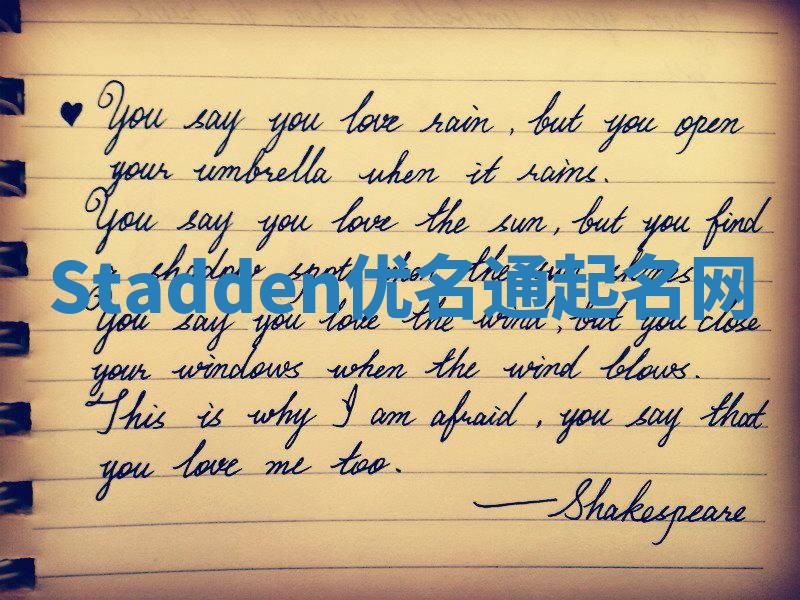 ♥ You say you love rain, but you open
your umbrella when it rains.
You say you love the sun, but you find
a shadow spot when the sun shines
Stadden优名通起名网
You say you love the wind, but you close
your windows when the wind blows.
This is why I am afraid, you say that
you love me too.
—Shakespeare